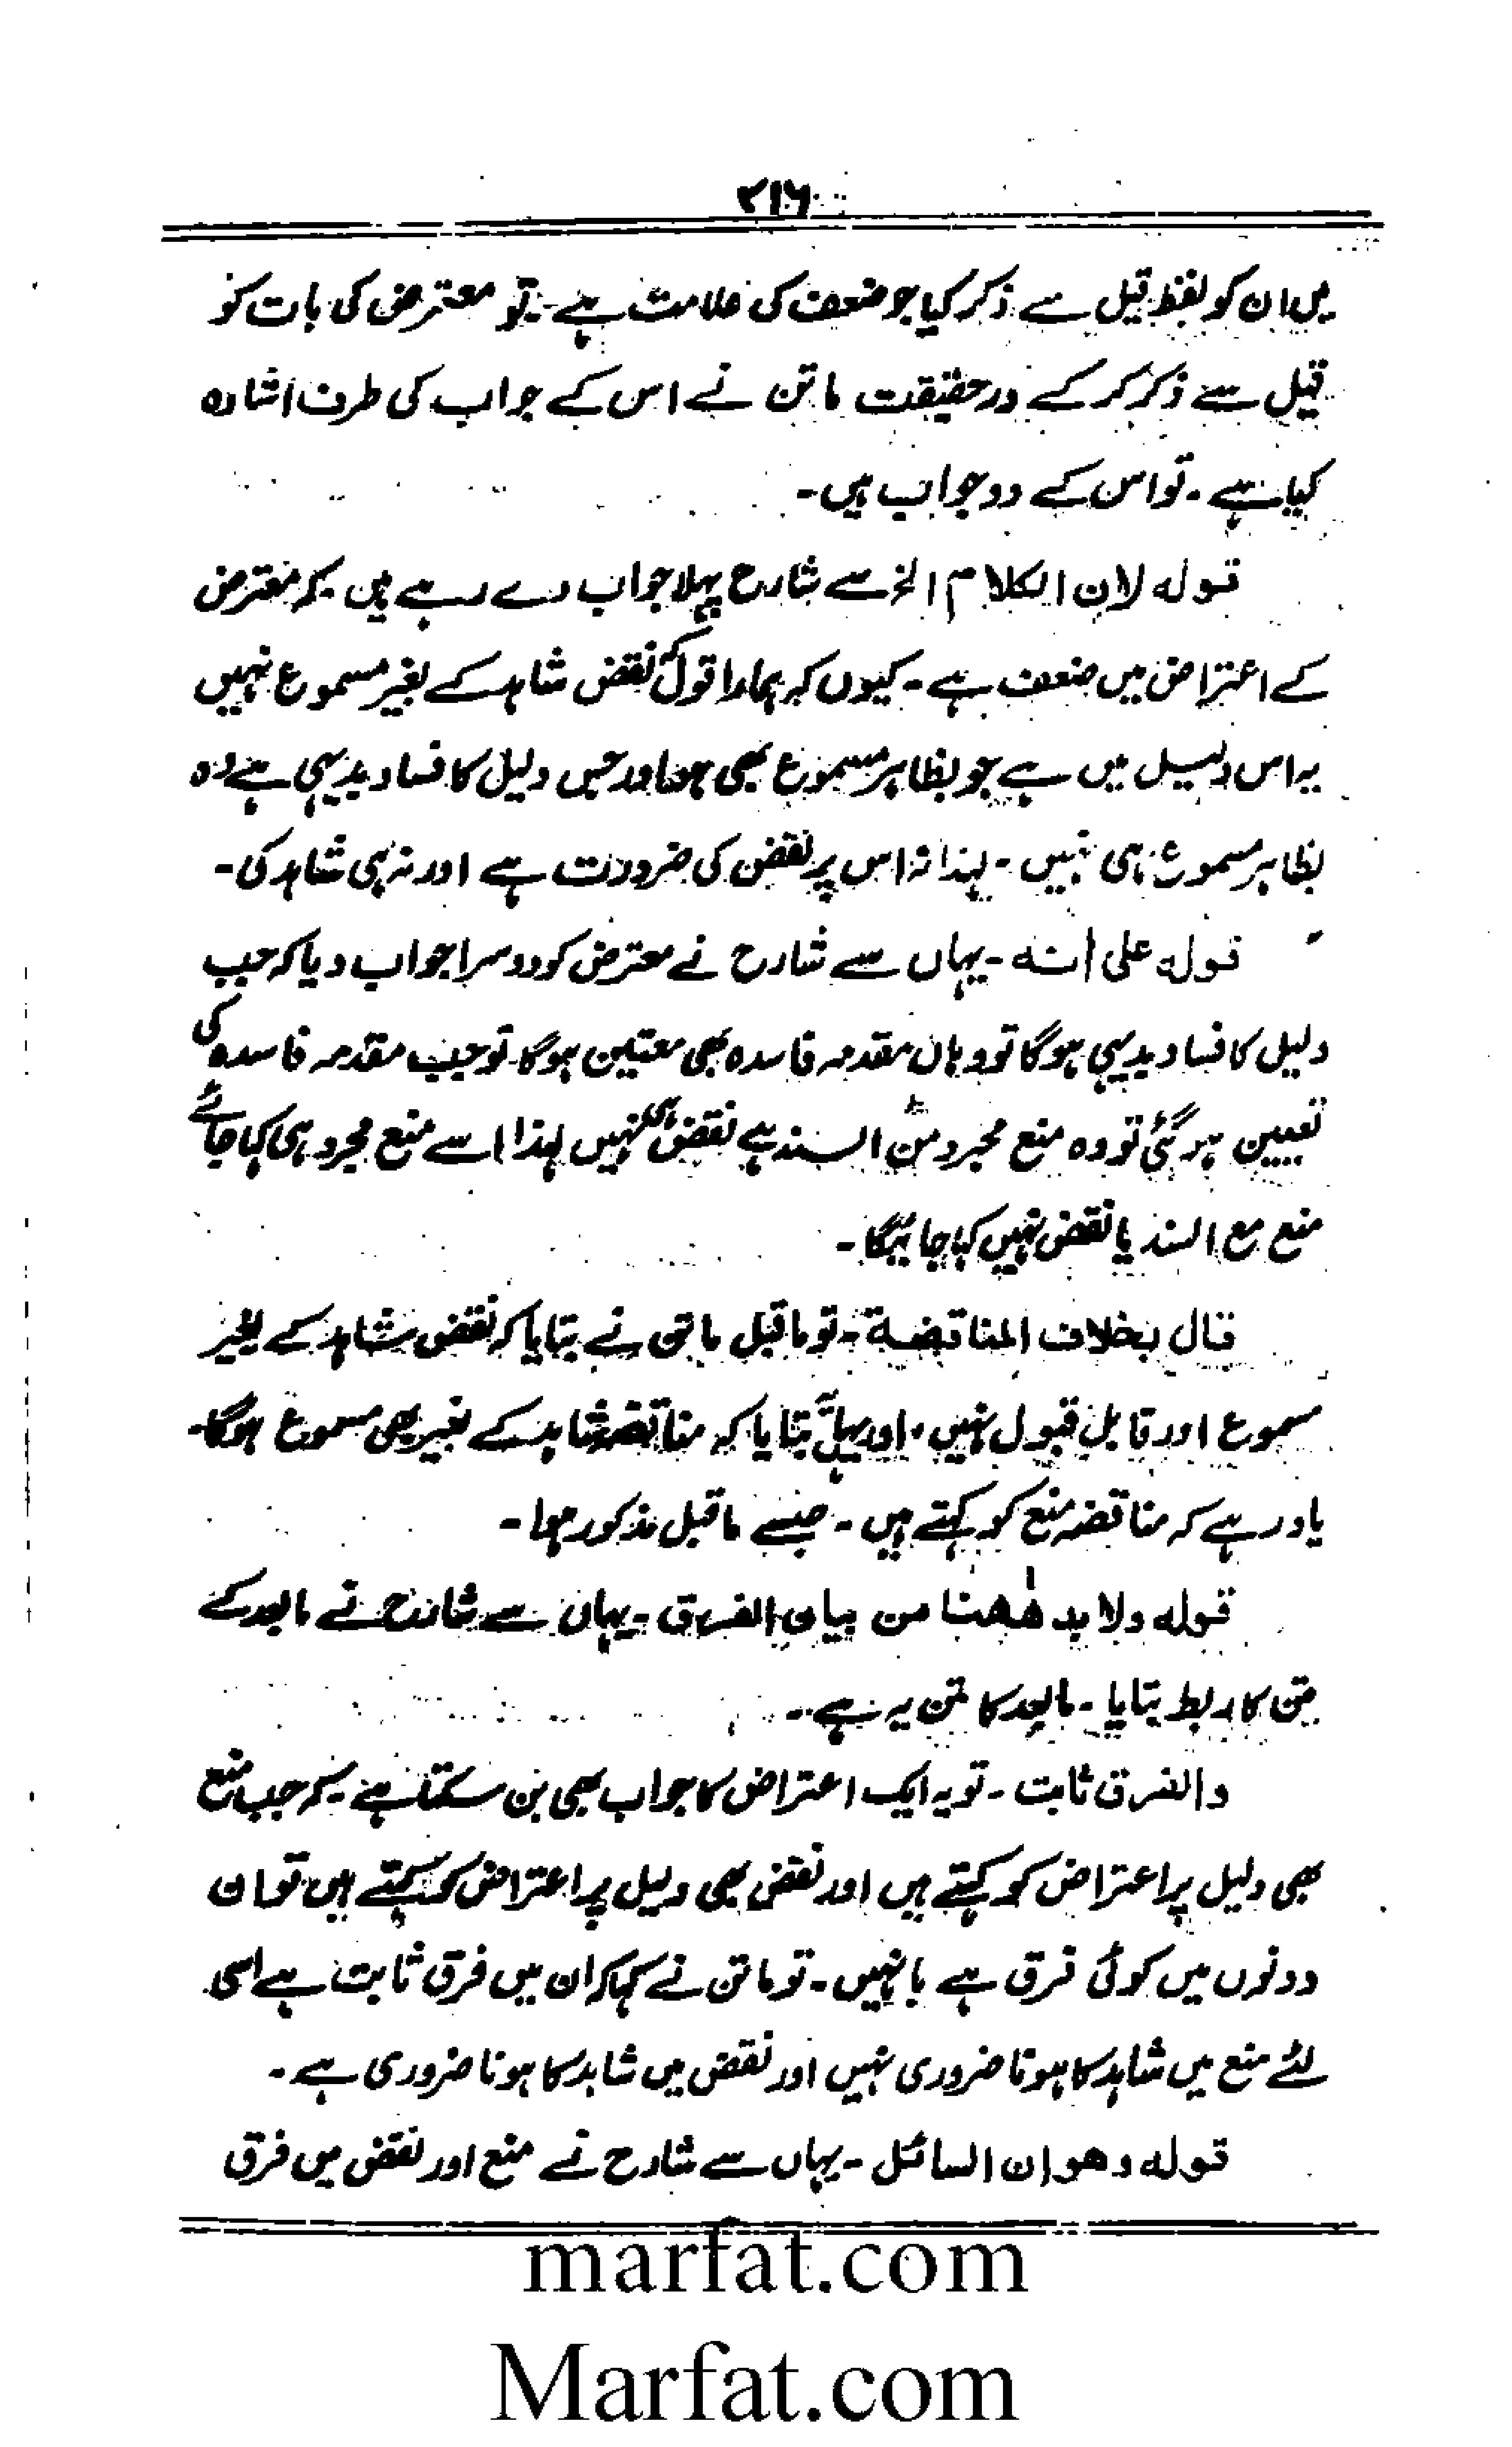 ۲۱۶
میں ان کو لفظ قیل سے ذکر کیا جو ضعف کی علامت ہے۔ تو معترض کی بات کو
قیل سے ذکر کر کے درحقیقت ماتن نے اس کے جواب کی طرف اشارہ
کیا ہے۔ تو اس کے دو جواب ہیں۔
قولہ لان الکلام الخ سے شارح پہلا جواب دے رہے ہیں کہ معترض
کے اعتراض میں ضعف ہے۔ کیوں کہ ہمارا قول کہ نقض شاہد کے بغیر مسموع نہیں
یہ اس دلیل میں ہے جو بظاہر مسموع بھی ہو اور جس دلیل کا فساد بدیہی ہے وہ
بظاہر مسموع ہی نہیں۔ لہذا نہ اس پر نقض کی ضرورت ہے اور نہ ہی شاہد کی۔
قولہ علی انہ۔ یہاں سے شارح نے معترض کو دوسرا جواب دیا کہ جب
دلیل کا فساد بدیہی ہوگا تو وہاں مقدمہ فاسدہ بھی معتین ہوگا۔ تو جب مقدمہ فاسدہ کی
تعیین ہو گئی تو وہ منع مجرد من السند ہے نقض نہیں لہذا اسے منع مجرد ہی کہا جائے
منع مع السند یا نقض نہیں کہا جائیگا۔
قال بخلاف المناقضة۔ تو ماقبل ماتن نے بتایا کہ نقض شاہد کے بغیر
مسموع اور قابل قبول نہیں، اور یہاں بتایا کہ مناقضہ شاہد کے بغیر بھی مسموع ہوگا۔
یاد رہے کہ مناقضہ منع کو کہتے ہیں۔ جیسے ماقبل مذکور ہوا۔
قولہ ولا بد ھٰھنا من بیان الفرق۔ یہاں سے شارح نے مابعد کے
متن کا ربط بتایا۔ مابعد کا متن یہ ہے۔
والفرق ثابت۔ تو یہ ایک اعتراض کا جواب بھی بن سکتا ہے۔ کہ جب منع
بھی دلیل پر اعتراض کو کہتے ہیں اور نقض بھی دلیل پر اعتراض کو کہتے ہیں تو ان
دونوں میں کوئی فرق ہے یا نہیں۔ تو ماتن نے کہا کہ ان میں فرق ثابت ہے اسی
لئے منع میں شاہد کا ہونا ضروری نہیں اور نقض میں شاہد کا ہونا ضروری ہے۔
قولہ وھو ان السائل۔ یہاں سے شارح نے منع اور نقض میں فرق
marfat.com
Marfat.com